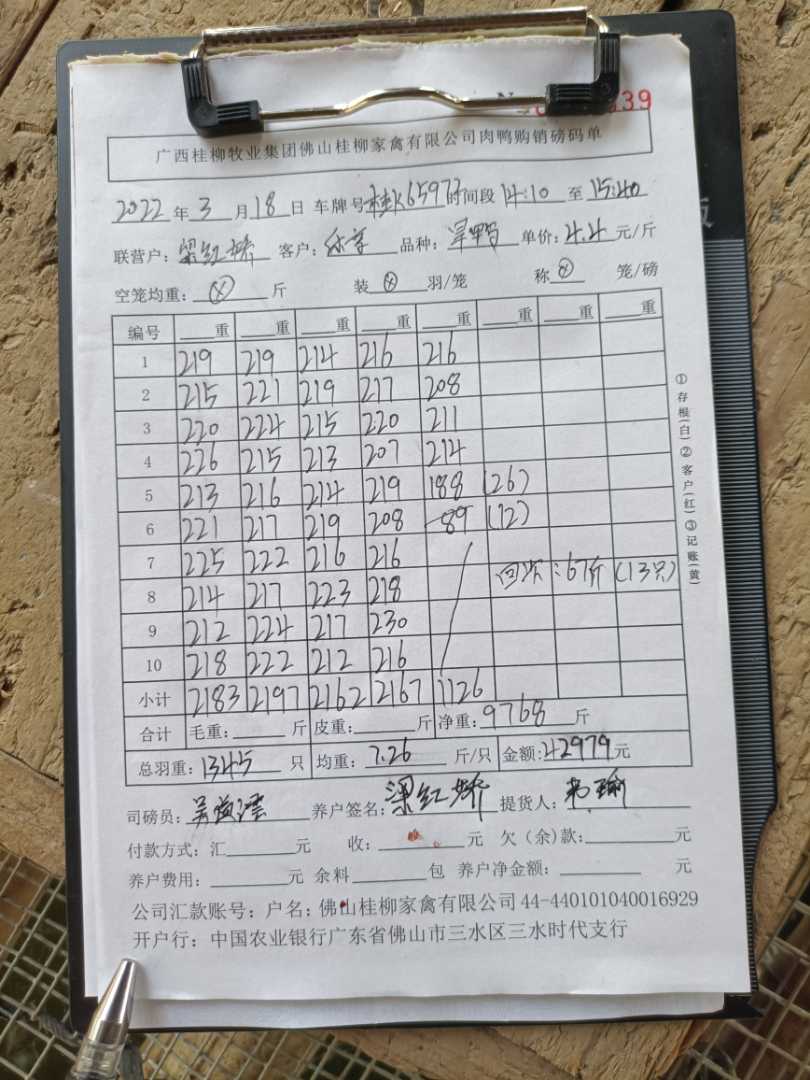 39
广西桂柳牧业集团佛山桂柳家禽有限公司肉鸭购销磅码单
2022年3月18日 车牌号 65977 时间段 14:10 至 15:40
联营户：梁红娇 客户： 品种： 单价：4.4元/斤
空笼均重：⊗斤 装⊗羽/笼 称⊗笼/磅
编号 重 重 重 重 重 重 重 重
1 219 219 214 216 216
2 215 221 219 217 208
3 220 224 215 220 211
4 226 215 213 207 214
5 213 216 214 219 188 (26)
6 221 217 219 208 -89 (12)
7 225 222 216 216
8 214 217 223 218 67斤 (13只)
9 212 224 217 230
10 218 222 212 216
小计 2183 2197 2162 2167 1126
合计 毛重： 斤 皮重： 斤 净重：9768斤
总羽重：1345只 均重：7.26斤/只 金额：42979元
司磅员： 养户签名：梁红娇 提货人：
付款方式：汇 元 收： 元 欠（余）款： 元
养户费用： 元 余料 包 养户净金额： 元
公司汇款账号：户名：佛山桂柳家禽有限公司 44-440101040016929
开户行：中国农业银行广东省佛山市三水区三水时代支行
①存根(白)②客户(红)③记账(黄)